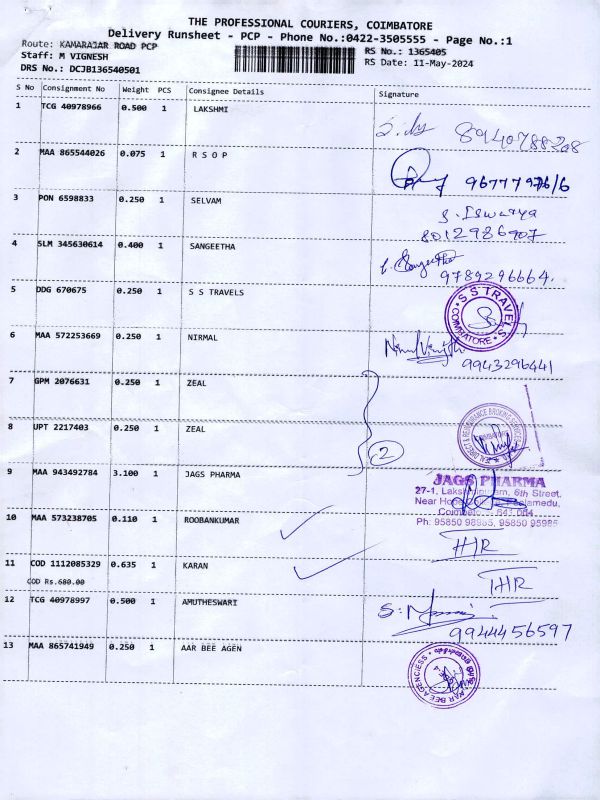 THE PROFESSIONAL COURIERS, COIMBATORE
Delivery Runsheet - PCP - Phone No.:0422-3505555 - Page No.:1
Route: KAMARAJAR ROAD PCP
RS No.: 1365405
Staff: M VIGNESH
RS Date: 11-May-2024
DRS No.: DCJB136540501
S No Consignment No Weight PCS Consignee Details Signature
1 TCG 40978966 0.500 1 LAKSHMI
8940788208
2 MAA 865544026 0.075 1 R S O P
3 PON 6598833 0.250 1 SELVAM
S. Iswarya
8012986907
4 SLM 345630614 0.400 1 SANGEETHA
Sangeetha
9789296664.
5 DDG 670675 0.250 1 S S TRAVELS
S S TRAVELS
COIMBATORE
6 MAA 572253669 0.250 1 NIRMAL
9943296441
7 GPM 2076631 0.250 1 ZEAL
8 UPT 2217403 0.250 1 ZEAL
2
9 MAA 943492784 3.100 1 JAGS PHARMA
JAGS PHARMA
27-1, 6th Street,
Near
Ph: 95850 98985, 95850 95985
10 MAA 573238705 0.110 1 ROOBANKUMAR
11 COD 1112085329 0.635 1 KARAN
COD Rs.680.00
12 TCG 40978997 0.500 1 AMUTHESWARI
9944456597
13 MAA 865741949 0.250 1 AAR BEE AGEN